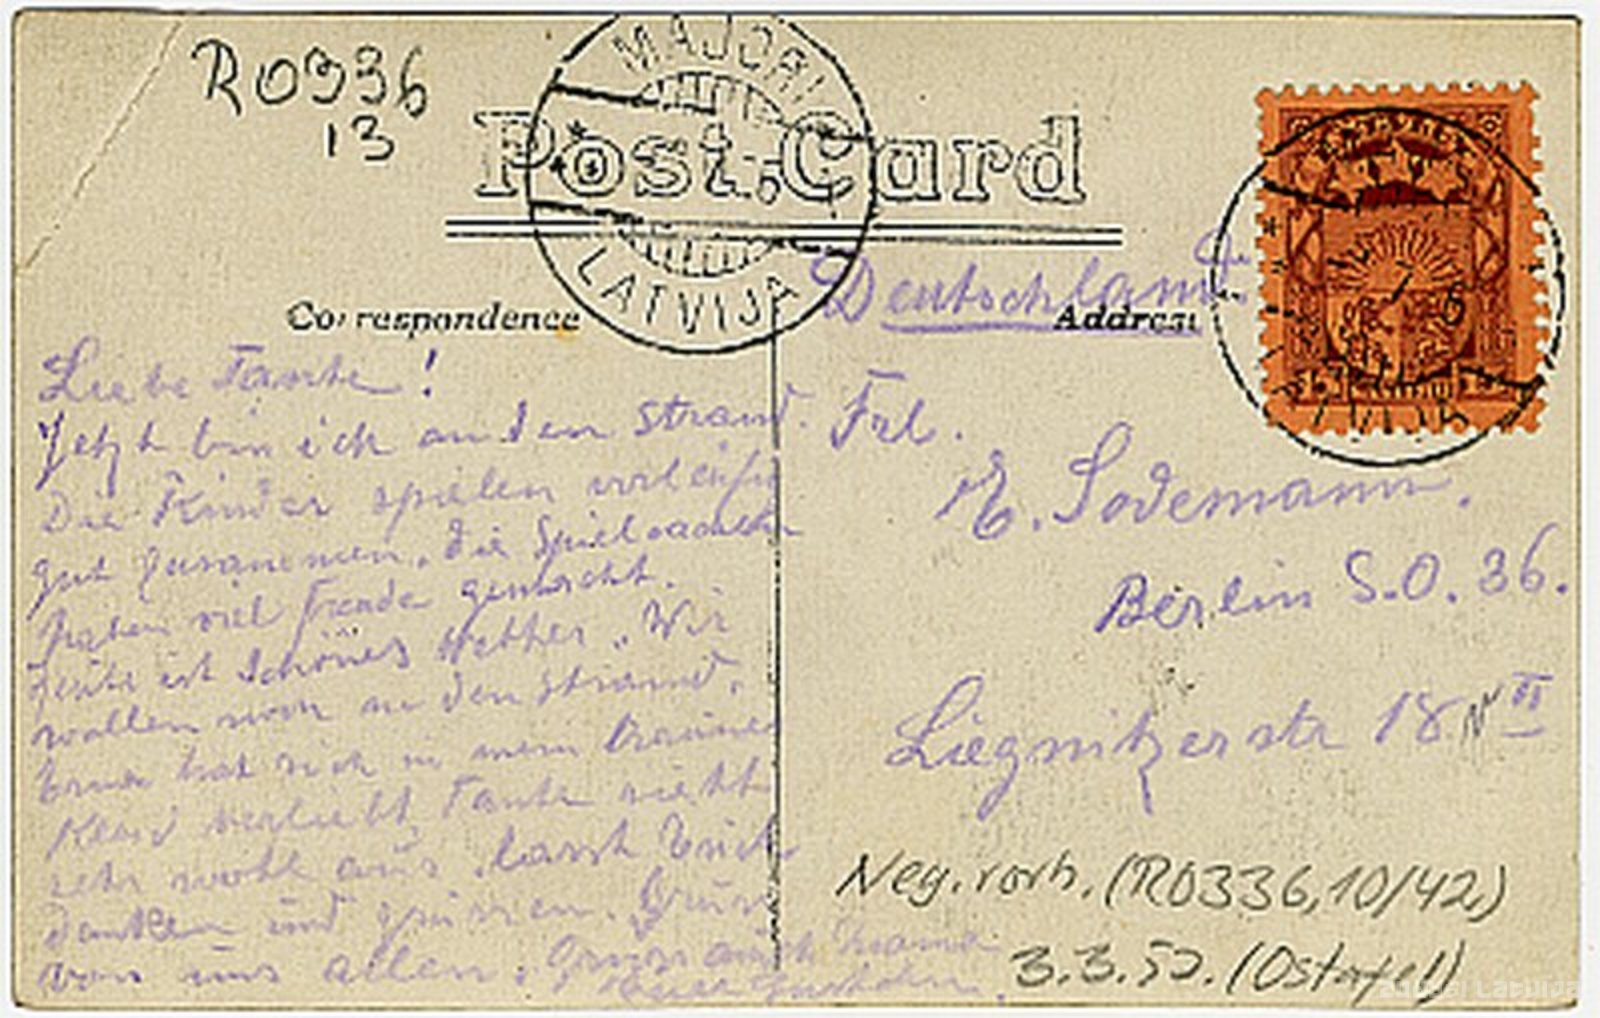 R0336
13
MAJORI
Post Card
LATVIJA
Deutschland
Correspondence
Address
Liebe Tante!
Jetzt bin ich an den Strand.
Die Kinder spielen vorläufig
gut zusammen, die Spielsachen
haben viel Freude gemacht.
Heute ist schönes Wetter. Wir
wollen nun an den Strand.
Erna hat sich in mein braunes
Kleid verliebt, Tante sieht
sehr wohl aus, lasst Erich
danken und grüssen. Gruss
von uns allen. Gruss auch Mama
Frl.
E. Sodemann.
Berlin S.O. 36.
Liegnitzerstr 18 II
Neg. vorh. (R0336,10/42)
3.3.52. (Ostafel)